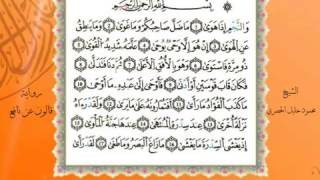 بِسْمِ اللَّهِ الرَّحْمَٰنِ الرَّحِيمِ
وَالنَّجْمِ إِذَا هَوَىٰ مَا ضَلَّ صَاحِبُكُمْ وَمَا غَوَىٰ وَمَا يَنطِقُ
عَنِ الْهَوَىٰ إِنْ هُوَ إِلَّا وَحْيٌ يُوحَىٰ عَلَّمَهُ شَدِيدُ الْقُوَىٰ
ذُو مِرَّةٍ فَاسْتَوَىٰ وَهْوَ بِالْأُفُقِ الْأَعْلَىٰ ثُمَّ دَنَا فَتَدَلَّىٰ
فَكَانَ قَابَ قَوْسَيْنِ أَوْ أَدْنَىٰ فَأَوْحَىٰ إِلَىٰ عَبْدِهِ مَا أَوْحَىٰ
مَا كَذَبَ الْفُؤَادُ مَا رَأَىٰ أَفَتُمَارُونَهُ عَلَىٰ مَا يَرَىٰ وَلَقَدْ رَءَاهُ
نَزْلَةً أُخْرَىٰ عِندَ سِدْرَةِ الْمُنتَهَىٰ عِندَهَا جَنَّةُ الْمَأْوَىٰ
إِذْ يَغْشَى السِّدْرَةَ مَا يَغْشَىٰ مَا زَاغَ الْبَصَرُ وَمَا طَغَىٰ لَقَدْ رَأَىٰ
الشيخ
محمود خليل الحصري
رواية
قالون عن نافع